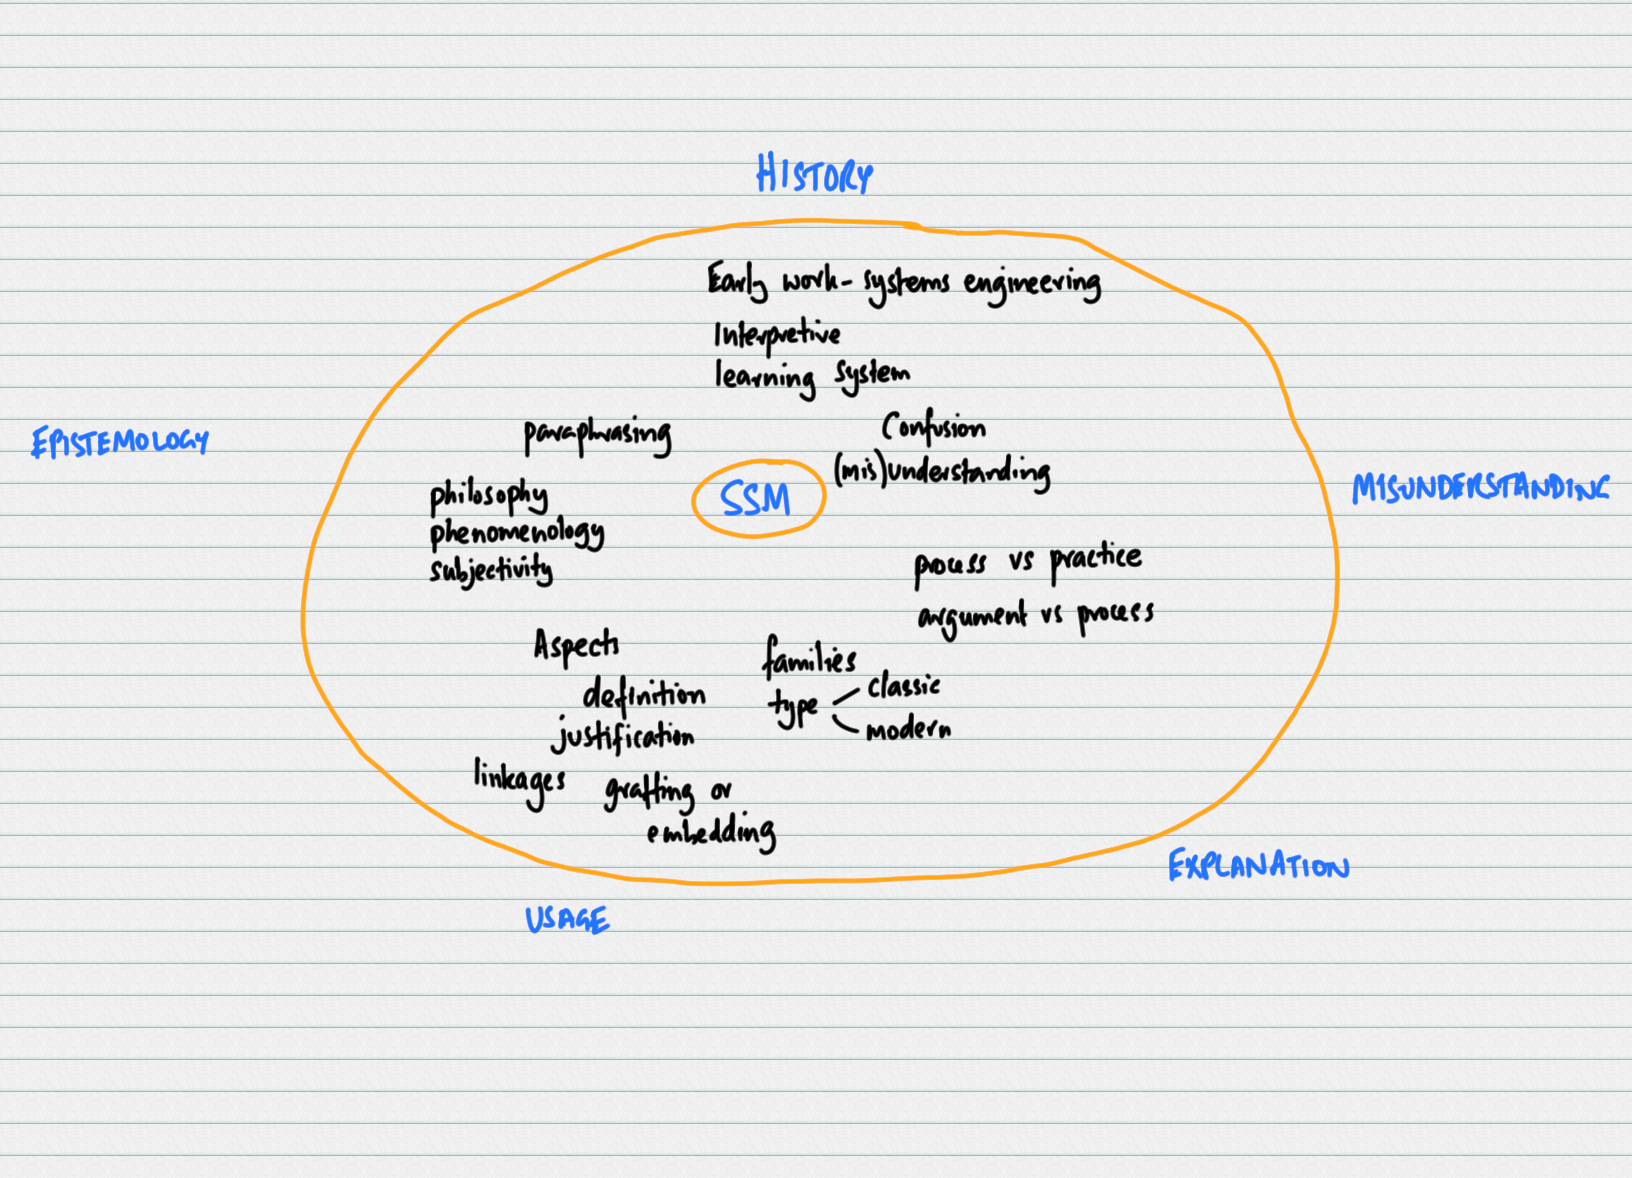 HISTORY
Early work - systems engineering
Interpretive
learning system
paraphrasing
Confusion
(mis)understanding
EPISTEMOLOGY
philosophy
phenomenology
subjectivity
SSM
MISUNDERSTANDING
process vs practice
argument vs process
Aspects
definition
justification
linkages
grafting or
embedding
families
type
classic
modern
EXPLANATION
USAGE